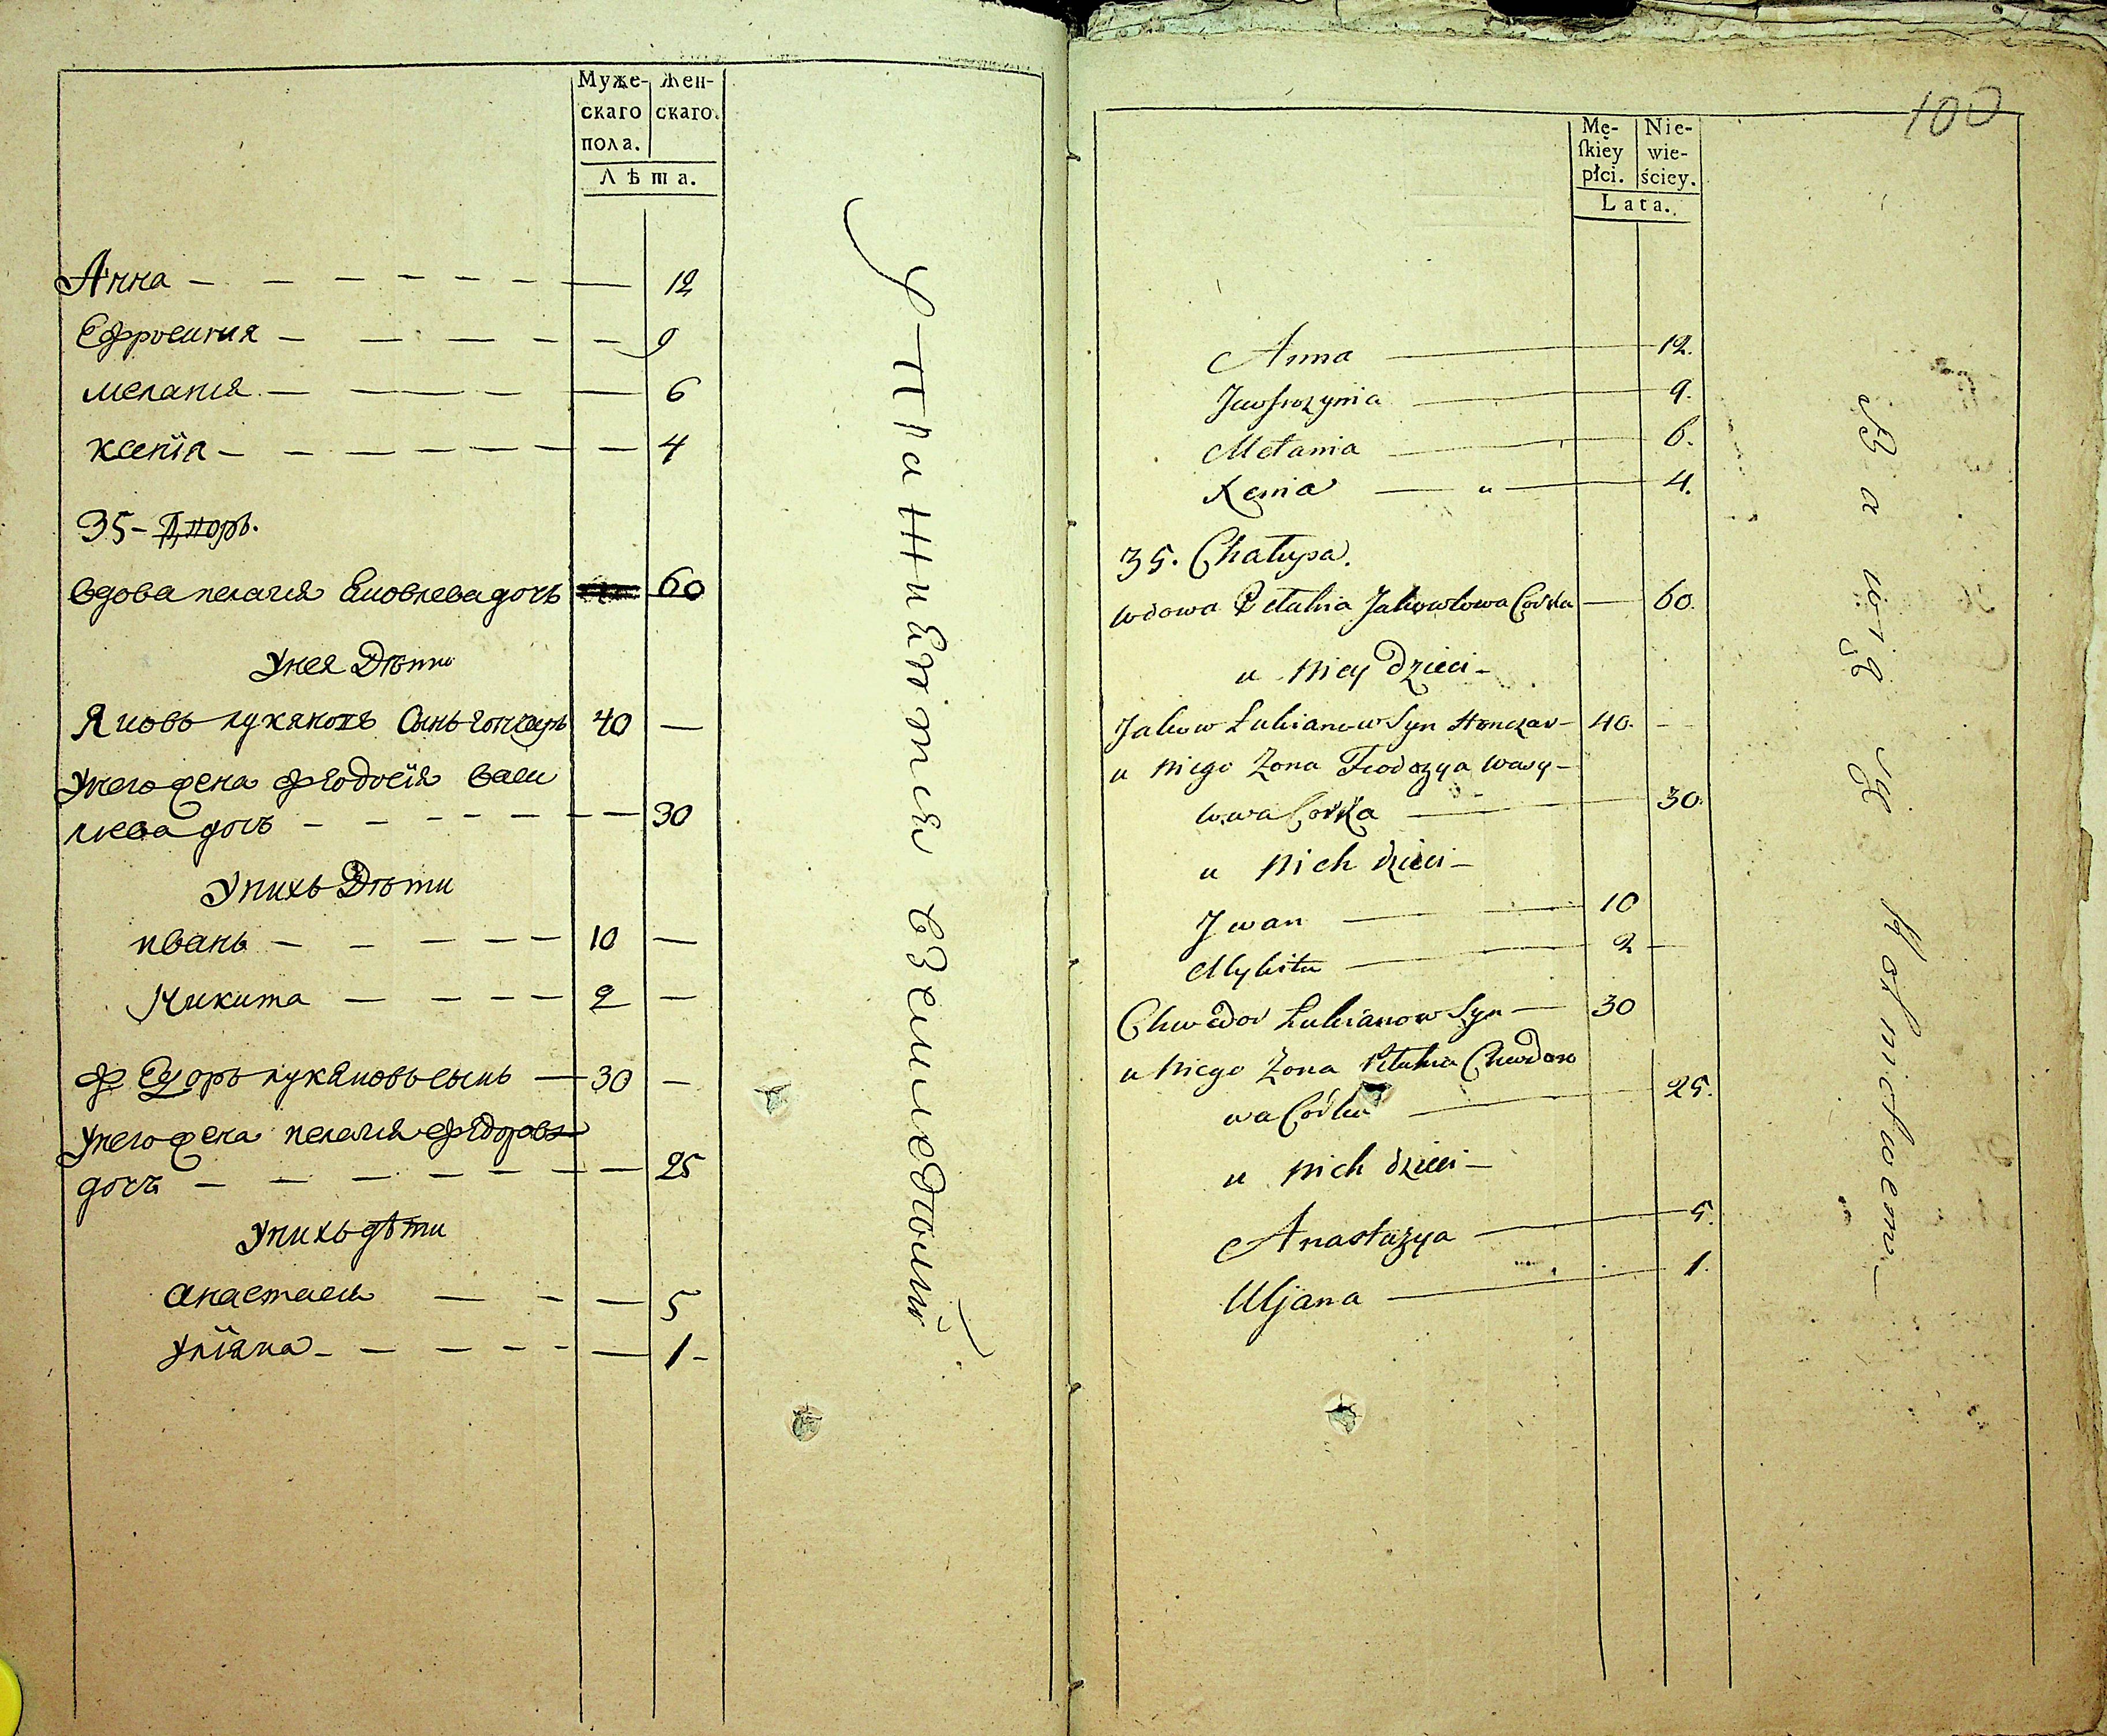 Муже- Жен-
скаго скаго
пола.
Лѣта.
Анна — — — — — — — 12
Ефросиния — — — — — 9
мелания — — — — — 6
ксенїя — — — — — — — 4
35 - Дворъ.
вдова пелагия Яковлева дочь 60
У нея Дѣти
Яковъ лукяновъ Сынъ гончаръ 40 —
У него жена федосїя васи
лиева дочь — — — — — — — 30
У нихъ Дѣти
иванъ — — — — — 10 —
Никита — — — — — 2 —
Федоръ лукяновъ сынъ — 30 —
У него жена пелагия федорова
дочь — — — — — — — 25
У нихъ дѣти
анастасия — — — 5
улїяна — — — — — — 1 -
Упражняется в Земледелии
100
Mę- Nie-
ſkiey wie-
płci. ściey.
Lata.
Anna — 12.
Jawfrozynia — 9.
Mełania — 6.
Xenia — „ — 4.
35. Chałupa.
wdowa Pełahia Jakowlowa Corka — 60.
u niey dzieci —
Jakow Łukianow Syn Honczar — 40. —
u niego Zona Feodozya Wasy-
lowa Corka — 30.
u nich dzieci —
Jwan — 10
Mykita — 2 —
Chwedor Łukianow Syn — 30
u niego Zona Pełahia Chwedoro
wa Corka — 25.
u nich dzieci —
Anastazya — 5.
Uljana — 1.
Bawią Się Rolnictwem —